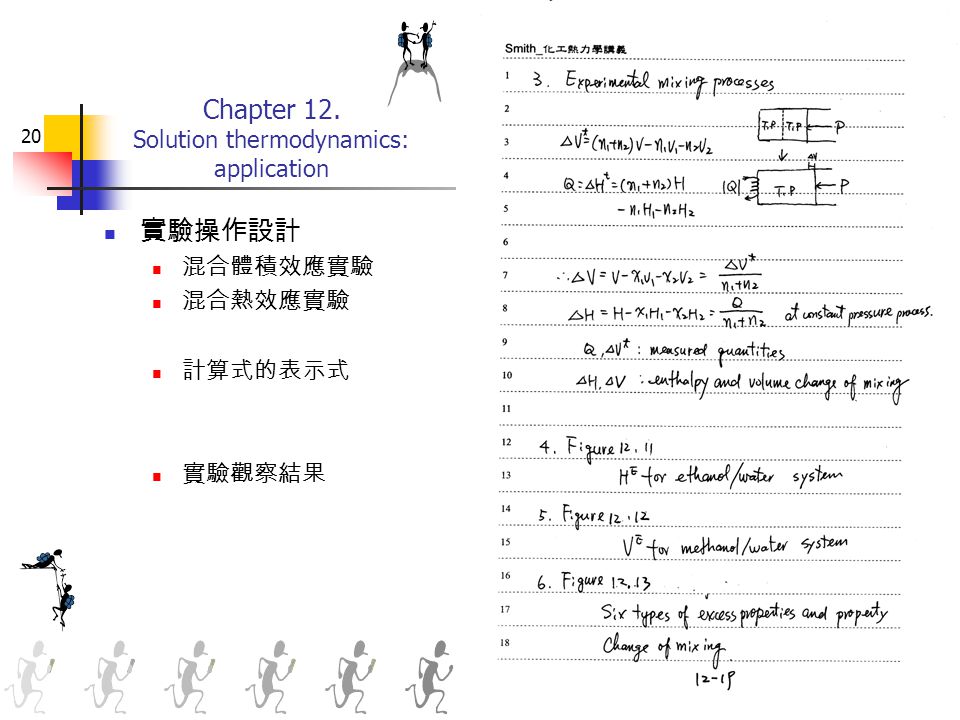 20
Chapter 12.
Solution thermodynamics:
application
實驗操作設計
混合體積效應實驗
混合熱效應實驗
計算式的表示式
實驗觀察結果
Smith_化工熱力學講義
1 3. Experimental mixing processes
2 T.P T.P P
3 ΔVᵗ=(n₁+n₂)V-n₁V₁-n₂V₂
ΔV
4 Q=ΔHᵗ=(n₁+n₂)H |Q| T.P P
5 -n₁H₁-n₂H₂
6
7 ∴ΔV=V-x₁V₁-x₂V₂=ΔVᵗ/n₁+n₂
8 ΔH=H-x₁H₁-x₂H₂=Q/n₁+n₂ at constant pressure process.
9 Q,ΔVᵗ: measured quantities
10 ΔH,ΔV: enthalpy and volume change of mixing
11
12 4. Figure 12.11
13 Hᴱ for ethanol/water system
14 5. Figure 12.12
15 Vᴱ for methanol/water system
16 6. Figure 12.13
17 Six types of excess properties and property
18 Change of mixing
12-19